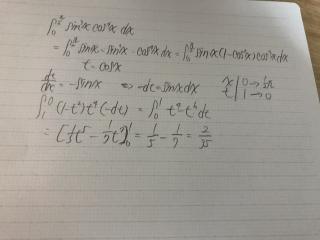 ∫₀^{π/2} sin³x cos⁴x dx
= ∫₀^{π/2} sinx · sin²x · cos⁴x dx = ∫₀^{π/2} sinx(1-cos²x)cos⁴x dx
t = cosx
dt/dx = -sinx ⇒ -dt = sinxdx x | 0 → π/2
t | 1 → 0
∫₁⁰ (1-t²)t⁴(-dt) = ∫₀¹ t⁴-t⁶ dt
= [1/5 t⁵ - 1/7 t⁷]₀¹ = 1/5 - 1/7 = 2/35